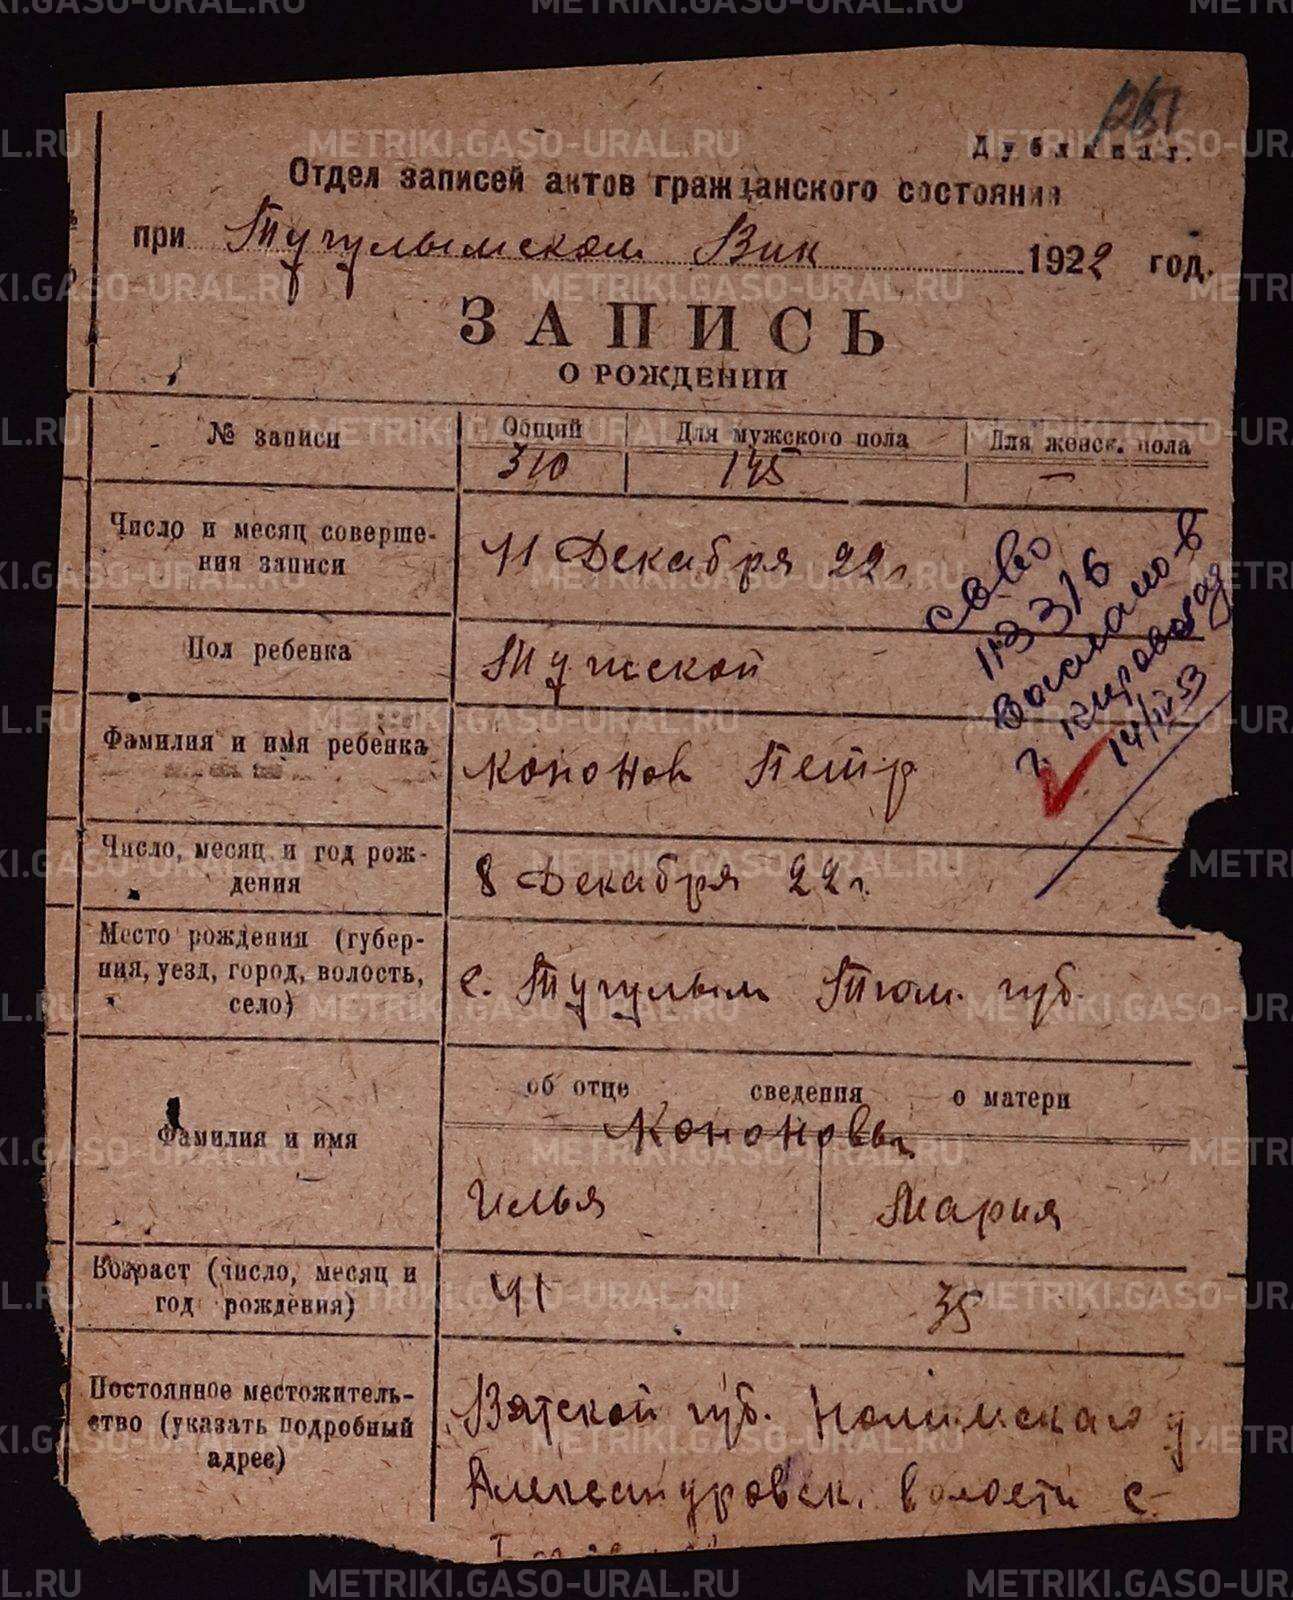 Дубликат.
Отдел записей актов гражданского состояния
при Тугулымском Вик 1922 год.
ЗАПИСЬ
О РОЖДЕНИИ
№ записи
Общий
Для мужского пола
Для женск. пола
310
145
—
Число и месяц соверше-
ния записи
11 Декабря 22 г.
Пол ребенка
Мужской
Фамилия и имя ребенка
Кононов Петр
Число, месяц и год рож-
дения
8 Декабря 22 г.
Место рождения (губер-
ния, уезд, город, волость,
село)
с. Тугулым Тюм. губ.
об отце сведения о матери
Фамилия и имя
Кононовы
Илья
Мария
Возраст (число, месяц и
год рождения)
41
35
Постоянное местожитель-
ство (указать подробный
адрес)
Вятской губ. Нолинского у.
Александровск. волости с.
св-во
г. Кировград
14/IV 53
METRIKI.GASO-URAL.RU